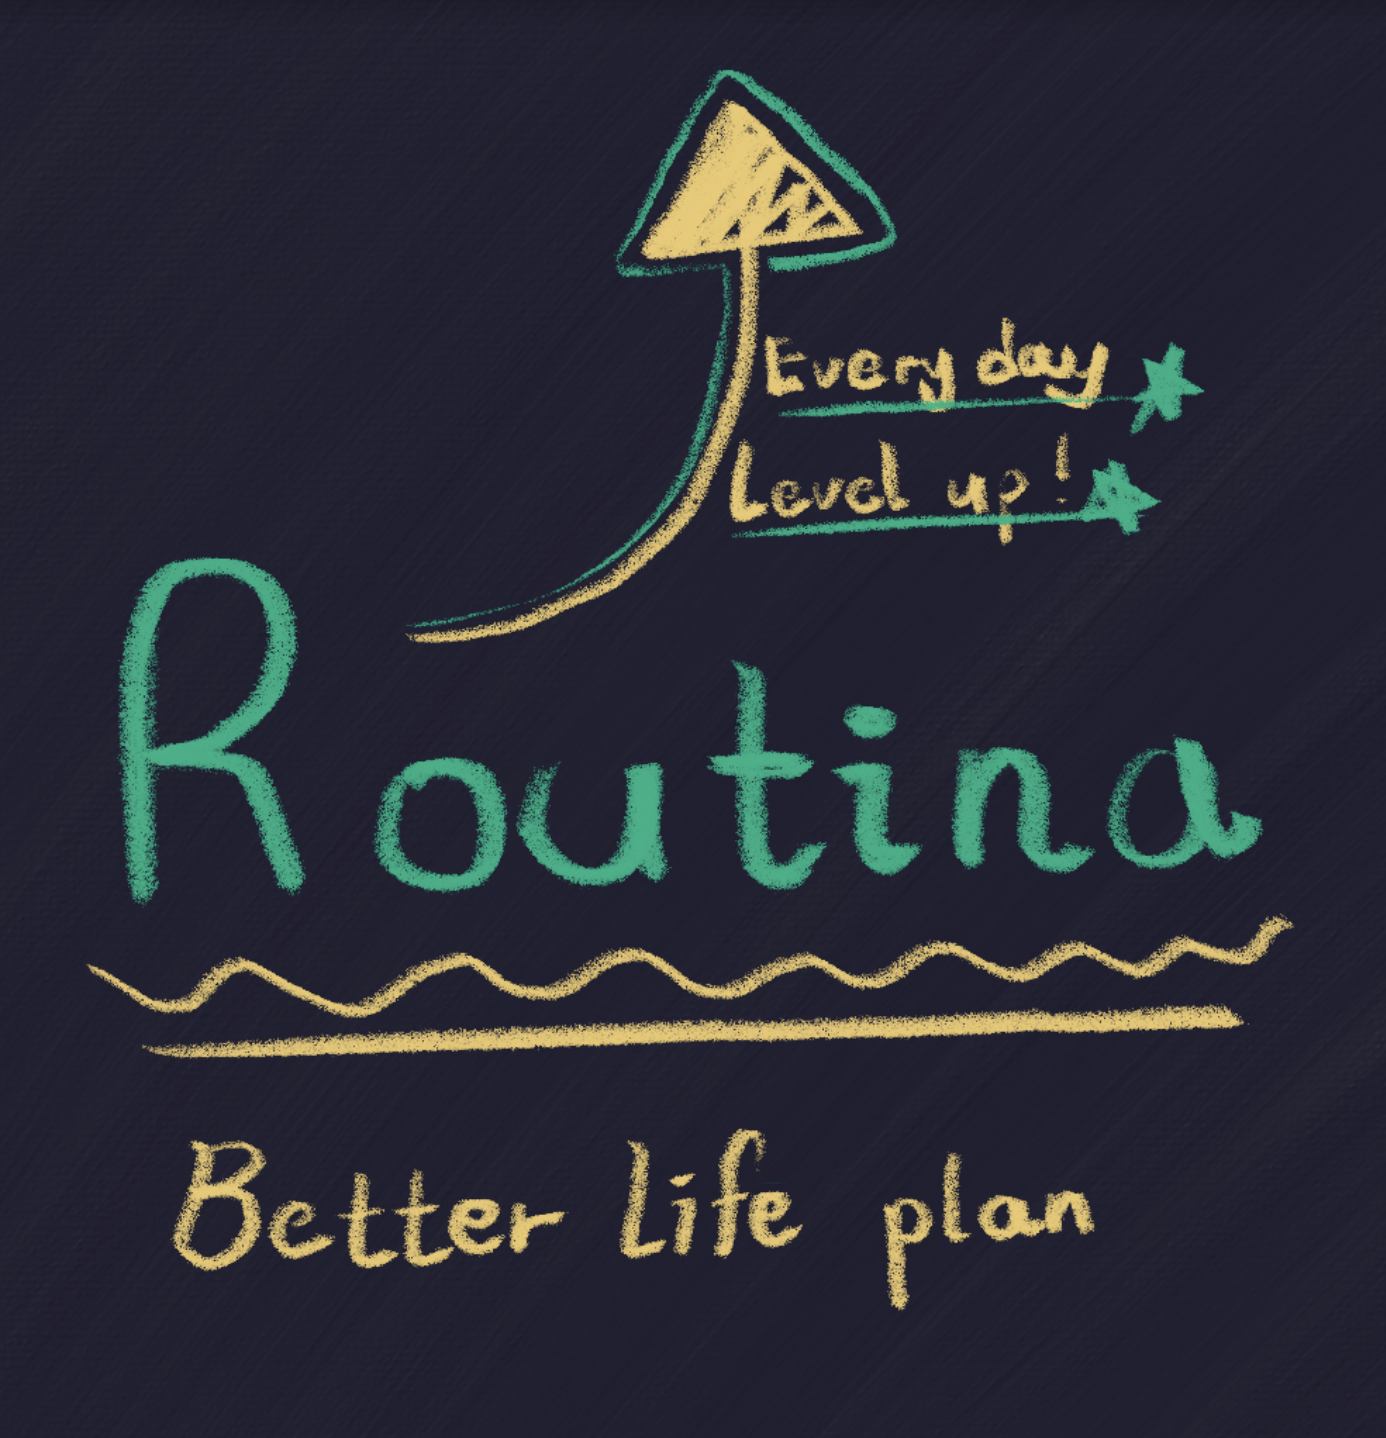 Every day
Level up!
Routina
Better life plan